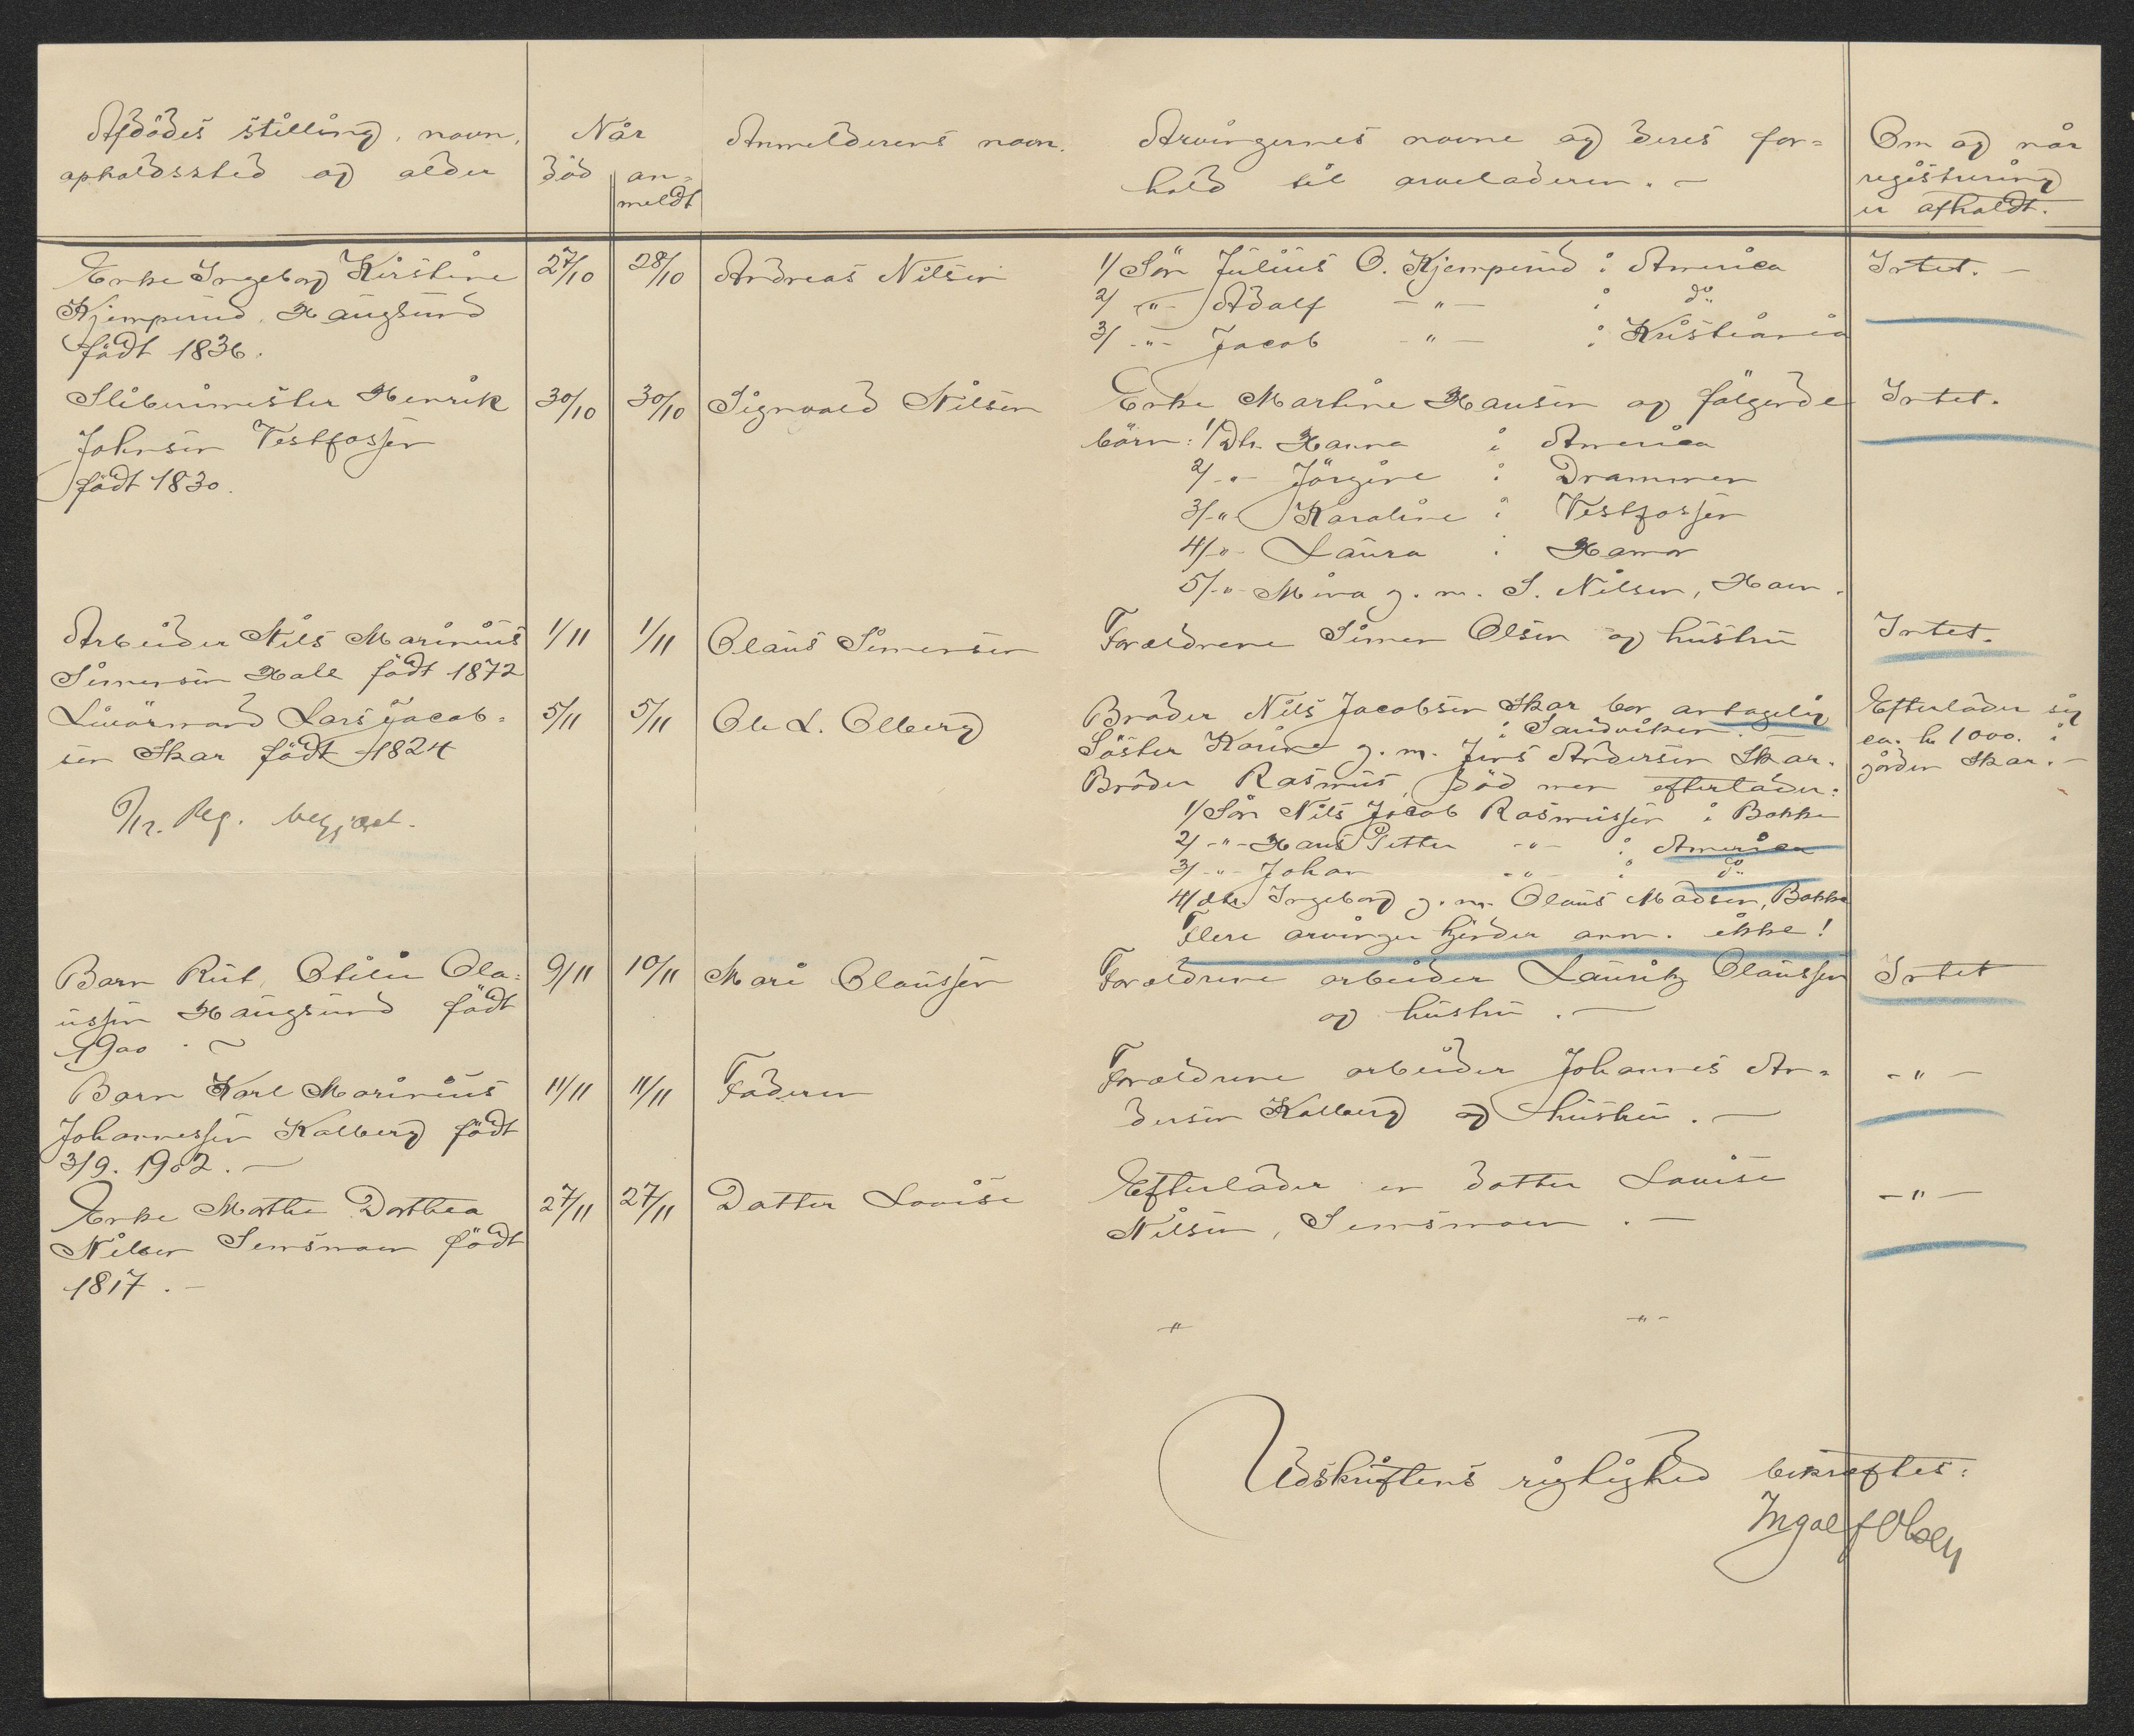 Afdödes stilling, navn,
opholdssted og alder
Når
död
an-
meldt
Anmelderens navn.
Arvingernes navne og deres for-
hold til arveladeren. -
Om og når
registrering
er afholdt.
Enke Ingeborg Kirstine
Kjemperud, Haugsund
födt 1836.
27/10
28/10
Andreas Nilsen
1/ Sön Julius O. Kjemperud i America
2/ -"- Adolf -"- i do
3/ -"- Jacob -"- i Kristiania
Intet. -
Sliberimester Henrik
Johnsen Vestfossen
födt 1830.
30/10
30/10
Signvald Nilsen
Enke Martine Hansen og fölgende
börn: 1/ Dtr. Hanna i America
2/ -"- Jörgine i Drammen
3/ -"- Karoline i Vestfossen
4/ -"- Laura i Hamar
5/ -"- Mina g. m. S. Nilsen, Ham.
Intet.
Arbeider Nils Marinius
Simensen Hals födt 1872
1/11
1/11
Olaus Simensen
Forældrene Simen Olsen og hustru
Intet.
Livörmand Lars Jacob-
sen Skar födt 1824
6/12. Reg. begjært.
5/11
5/11
Ole L. Olberg
Broder Nils Jacobsen Skar bor antagelig
i Sandviken.
Söster Karine g. m. Jens Andersen Skar.
Broder Rasmus, död men efterlader:
1/ Sön Nils Jacob Rasmussen i Bakke
2/ -"- Hans Petter -"- i America
3/ -"- Johan -"- i do
4/ dtr. Ingeborg g. m. Olaus Madsen, Bakke
Flere arvinger kjender anm. ikke!
Efterlader sig
ca. kr 1000. i
gården Skar. -
Barn Rut Otilie Ola-
ussen Haugsund födt
1900. -
9/11
10/11
Mari Olaussen
Forældrene arbeider Lauritz Olaussen
og hustru. -
Intet
Barn Karl Marinius
Johannessen Kolberg födt
3/9. 1902. -
11/11
11/11
Faderen
Forældrene arbeider Johannes An-
dersen Kolberg og hustru. -
-"-
Enke Mathe Dorthea
Nilsen Semsmoen födt
1817. -
27/11
27/11
Datter Lovise
Efterlader en datter Lovise
Nilsen, Semsmoen. -
-"-
-"- -"-
Udskriftens rigtighed bekræftes:
Ingolf Olsen